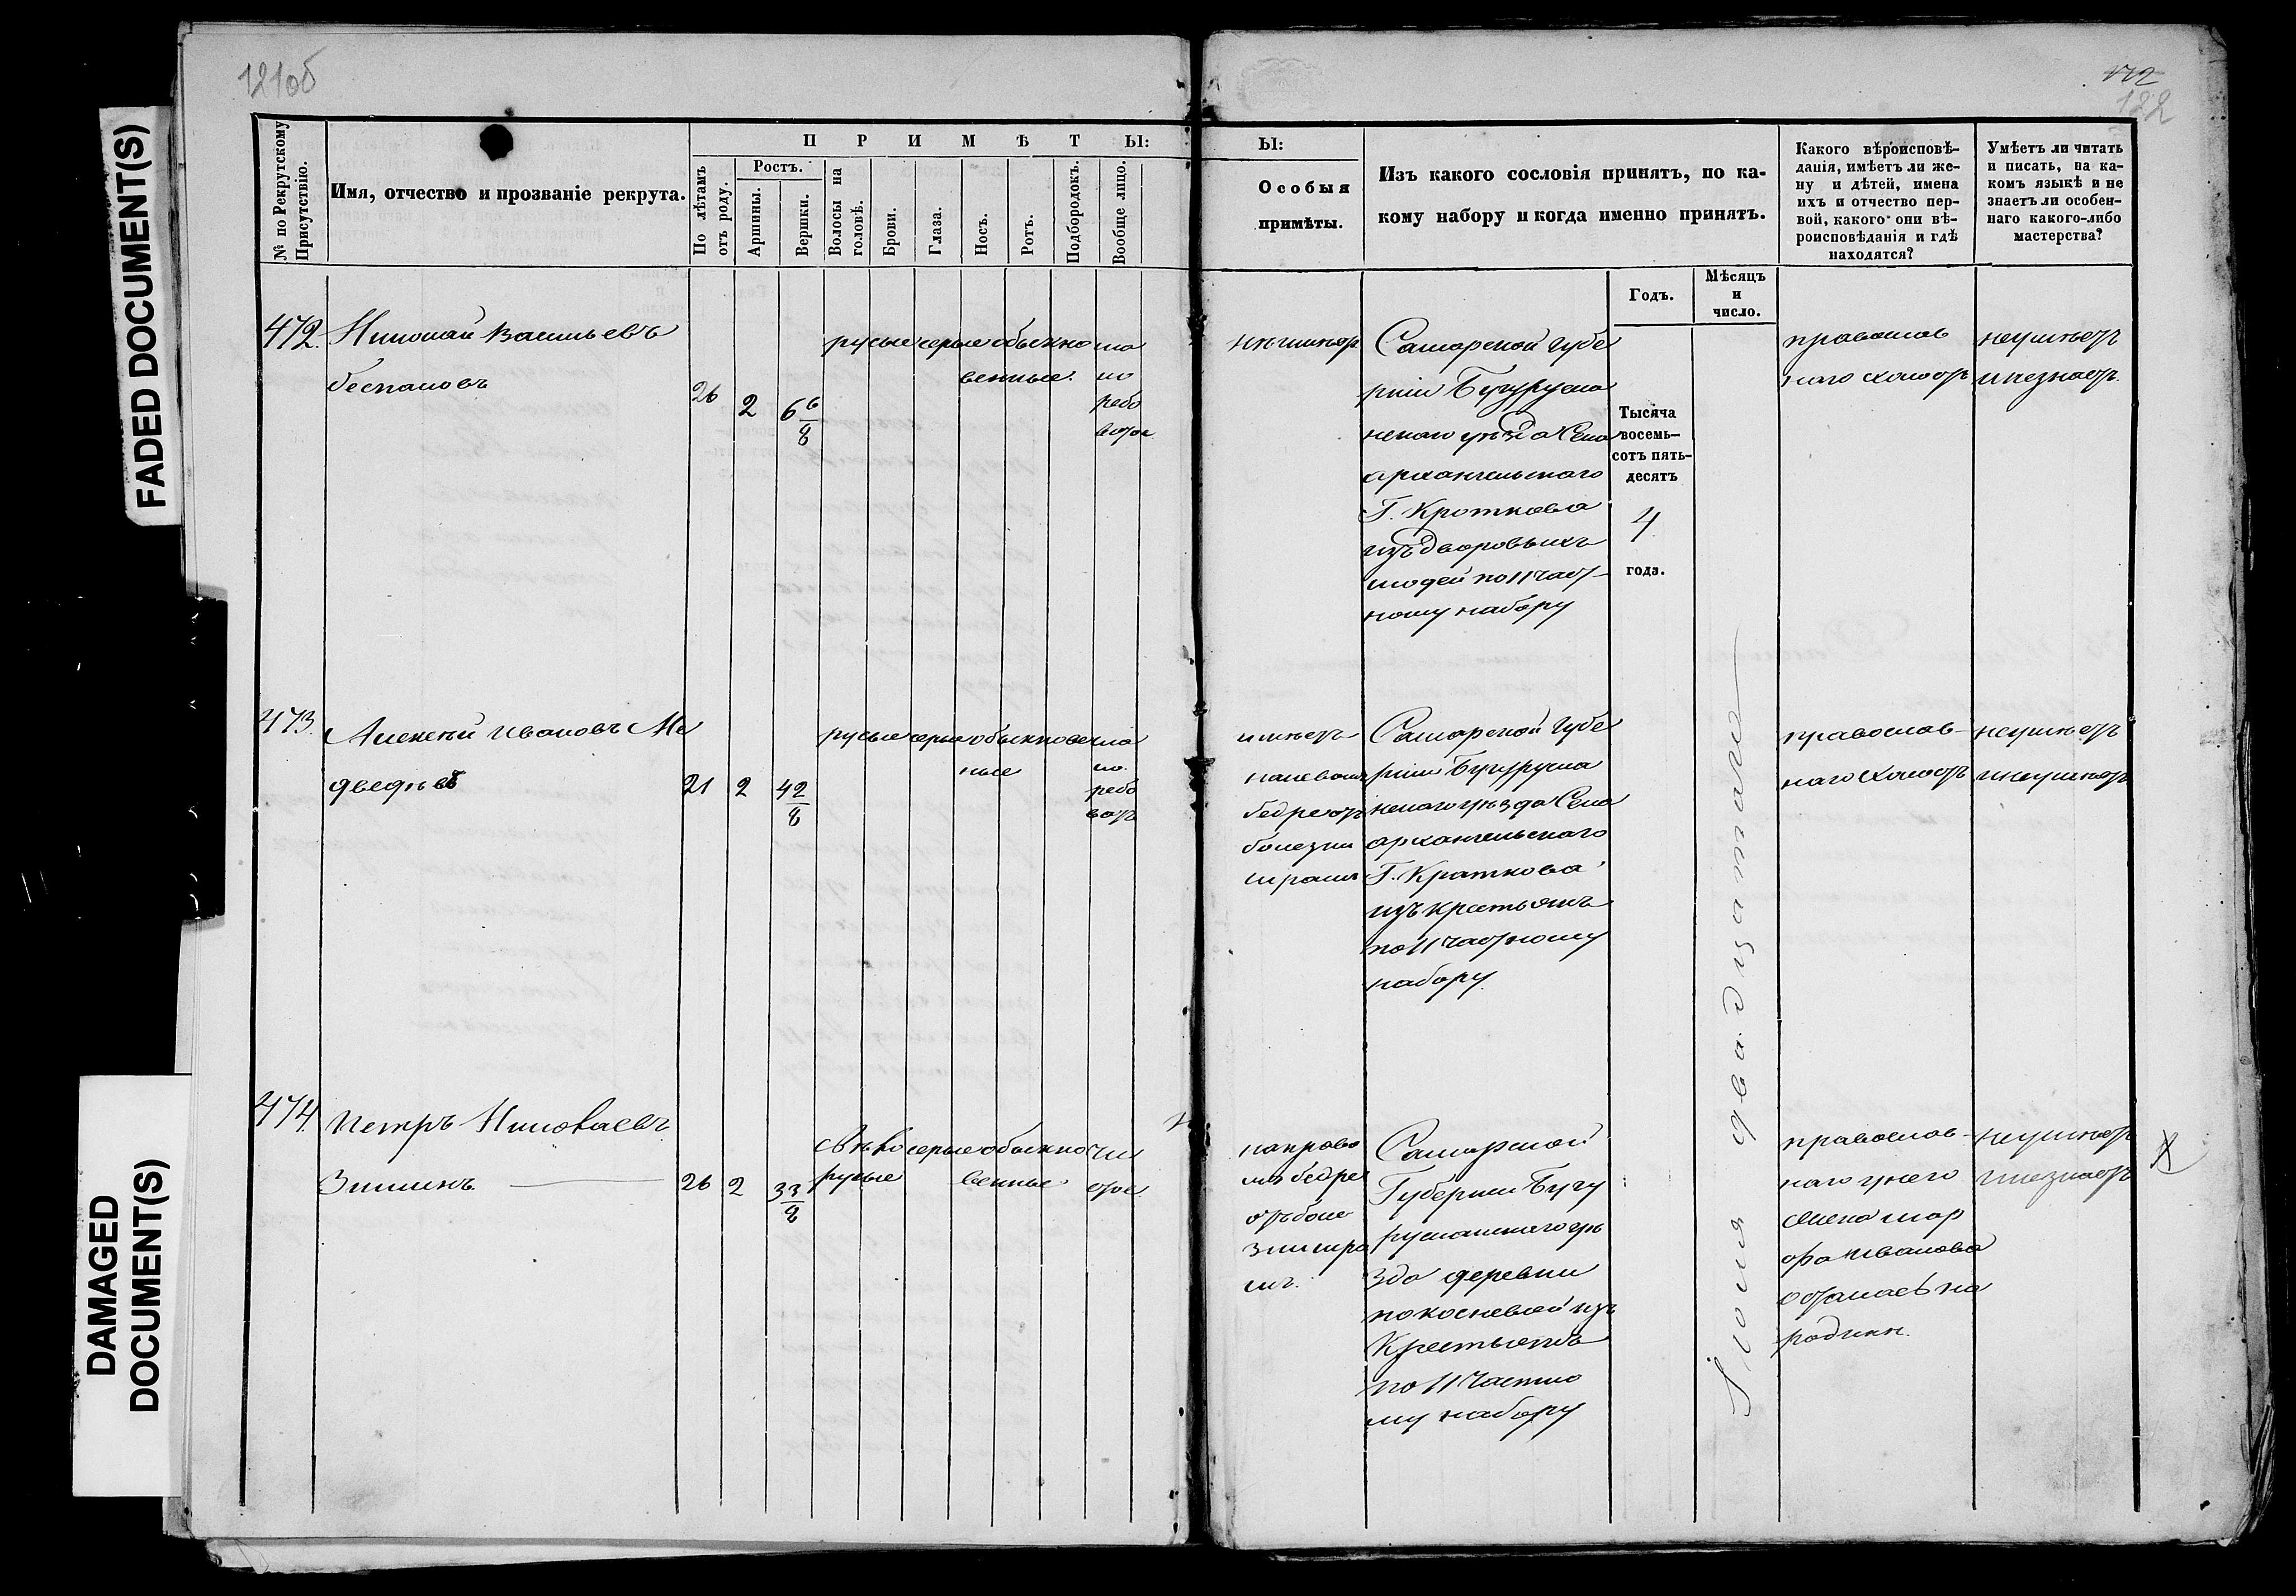 121об
172
122
FADED DOCUMENT(S)
DAMAGED
DOCUMENT(S)
№ по Рекрутскому
Присутствію.
Имя, отчество и прозваніе рекрута.
ПРИМѢТЫ:
По лѣтамъ
отъ роду.
Ростъ.
Аршины.
Вершки.
Волосы на
головѣ.
Брови.
Глаза.
Носъ.
Ротъ.
Подбородокъ.
Вообще лицо.
Ы:
Особыя
примѣты.
Изъ какого сословія принятъ, по ка-
кому набору и когда именно принятъ.
Годъ.
Мѣсяцъ
и
число.
Какого вѣроисповѣ-
данія, имѣетъ ли же-
ну и дѣтей, имена
ихъ и отчество пер-
вой, какого они вѣ-
роисповѣданія и гдѣ
находятся?
Умѣетъ ли читать
и писать, на ка-
комъ языкѣ и не
знаетъ ли особен-
наго какого-либо
мастерства?
472. Николай Васильевъ
беспаловъ
26
2
6 6/8
русые серые обыкно
венные
ма
ло
рябо
ватое
Самарской губе
рніи Бугурусла
нскаго уѣзда Села
архангельскаго
Г. Кроткова
изъ дворовыхъ
людей по 11 част-
ному набору
Тысяча
восемь-
сотъ пять-
десятъ
4
года.
Іюля двадцатаго
православ
наго холостъ
неумѣетъ
и незнаетъ
473. Алексѣй Ивановъ Ме
дведѣвъ
21
2
4 2/8
русые серые обыкновен
ные
ма
ло
рябо
вато
имѣетъ
на левомъ
бедре отъ
болезни
шрамъ
Самарской губе
рніи Бугурусла
нскаго уѣзда Села
архангельскаго
Г. Краткова
изъ крестьянъ
по 11 частному
набору.
православ-
наго холостъ
неумѣетъ
и неумѣетъ
474. Петръ Николаевъ
Зиминъ
26
2
3 3/8
свѣтло
русые
серые обыкно
венные
чи
стое
на право
мъ бедре
отъ боле
зни шра
мъ.
Самарской
Губерніи Бугу
русланскаго уѣ
зда деревни
покосневой изъ
Крестьянъ
по 11 частно
му набору
православ-
наго у него
жена мар
фа иванова
осталась на
родинѣ.
неумѣетъ
и незнаетъ